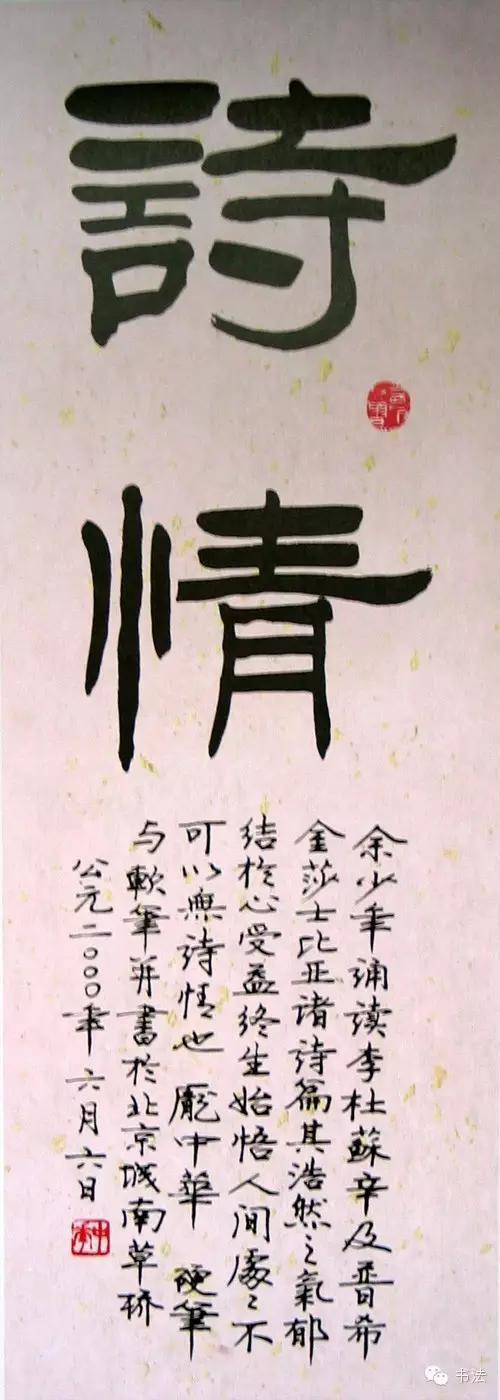 詩情
余少年诵读李杜蘇辛及普希
金莎士比亚诸诗篇其浩然之氣郁
结於心受益终生始悟人间處〻不
可以無诗情也 龎中華 硬筆
与軟筆并書於北京城南草桥
公元二〇〇〇年六月六日
中華
书法